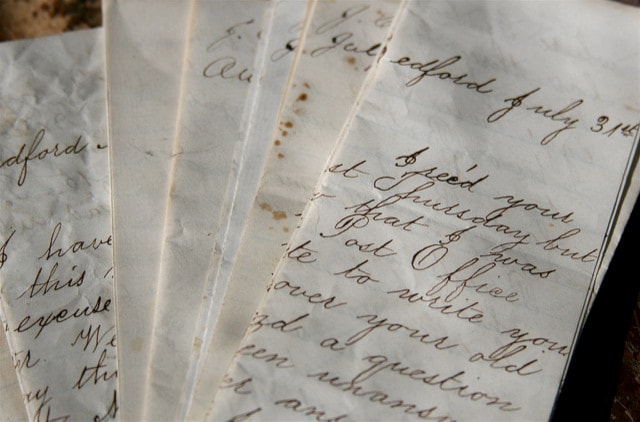 dford -
I have
this
excuse
r. We
y th
Au
Jul
edford July 31st
I rec'd your
st Thursday but
that I was
Post Office
te to write you
over your old
zd a question
een unansw
er ans